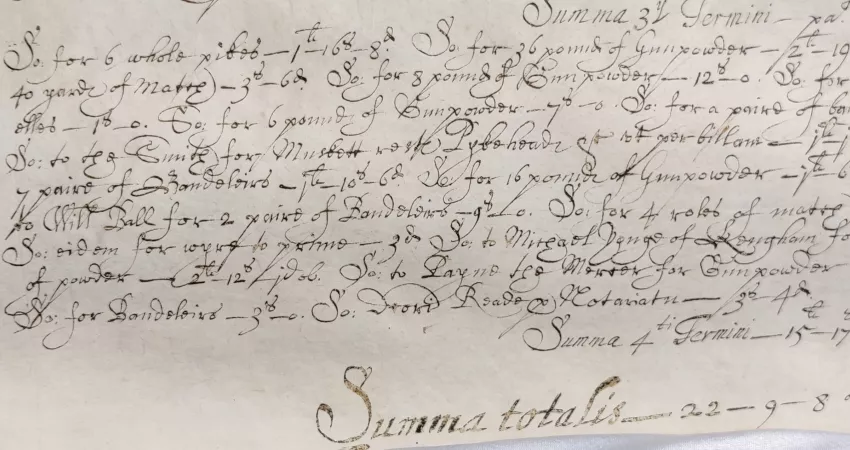 Summa 3ij Termini — pa:
So: for 6 whole pikes — 1li—16s—8d. So: for 36 pounds of Gunpowder — 2li—19
40 yards of Match — 3s—6d. So: for 8 pounds of Gunpowder — 12s—0. So: for
elles — 1s—0. So: for 6 pounds of Gunpowder — 7s—0. So: for a paire of ban
So: to the Smith for Muskett rests Pykeheads et ut per billam — 1li—1
7 paire of Bandeleirs — 1li—10s—6d. So: for 16 pounds of Gunpowder — 1li—6
to Willm Ball for 2 paire of Bandeleirs — 9s—0. So: for 4 roles of match
So: eidem for wyre to prime — 3d. So: to Michael Yonge of for
of powder — 2li—12s—jd ob. So: to Payne the Mercer for Gunpowder
So: for Bandeleirs — 3s—0. So: Reade p Notariatu — 3s—4d.
Summa 4ti Termini — 15li—17
Summa totalis — 22—9—8